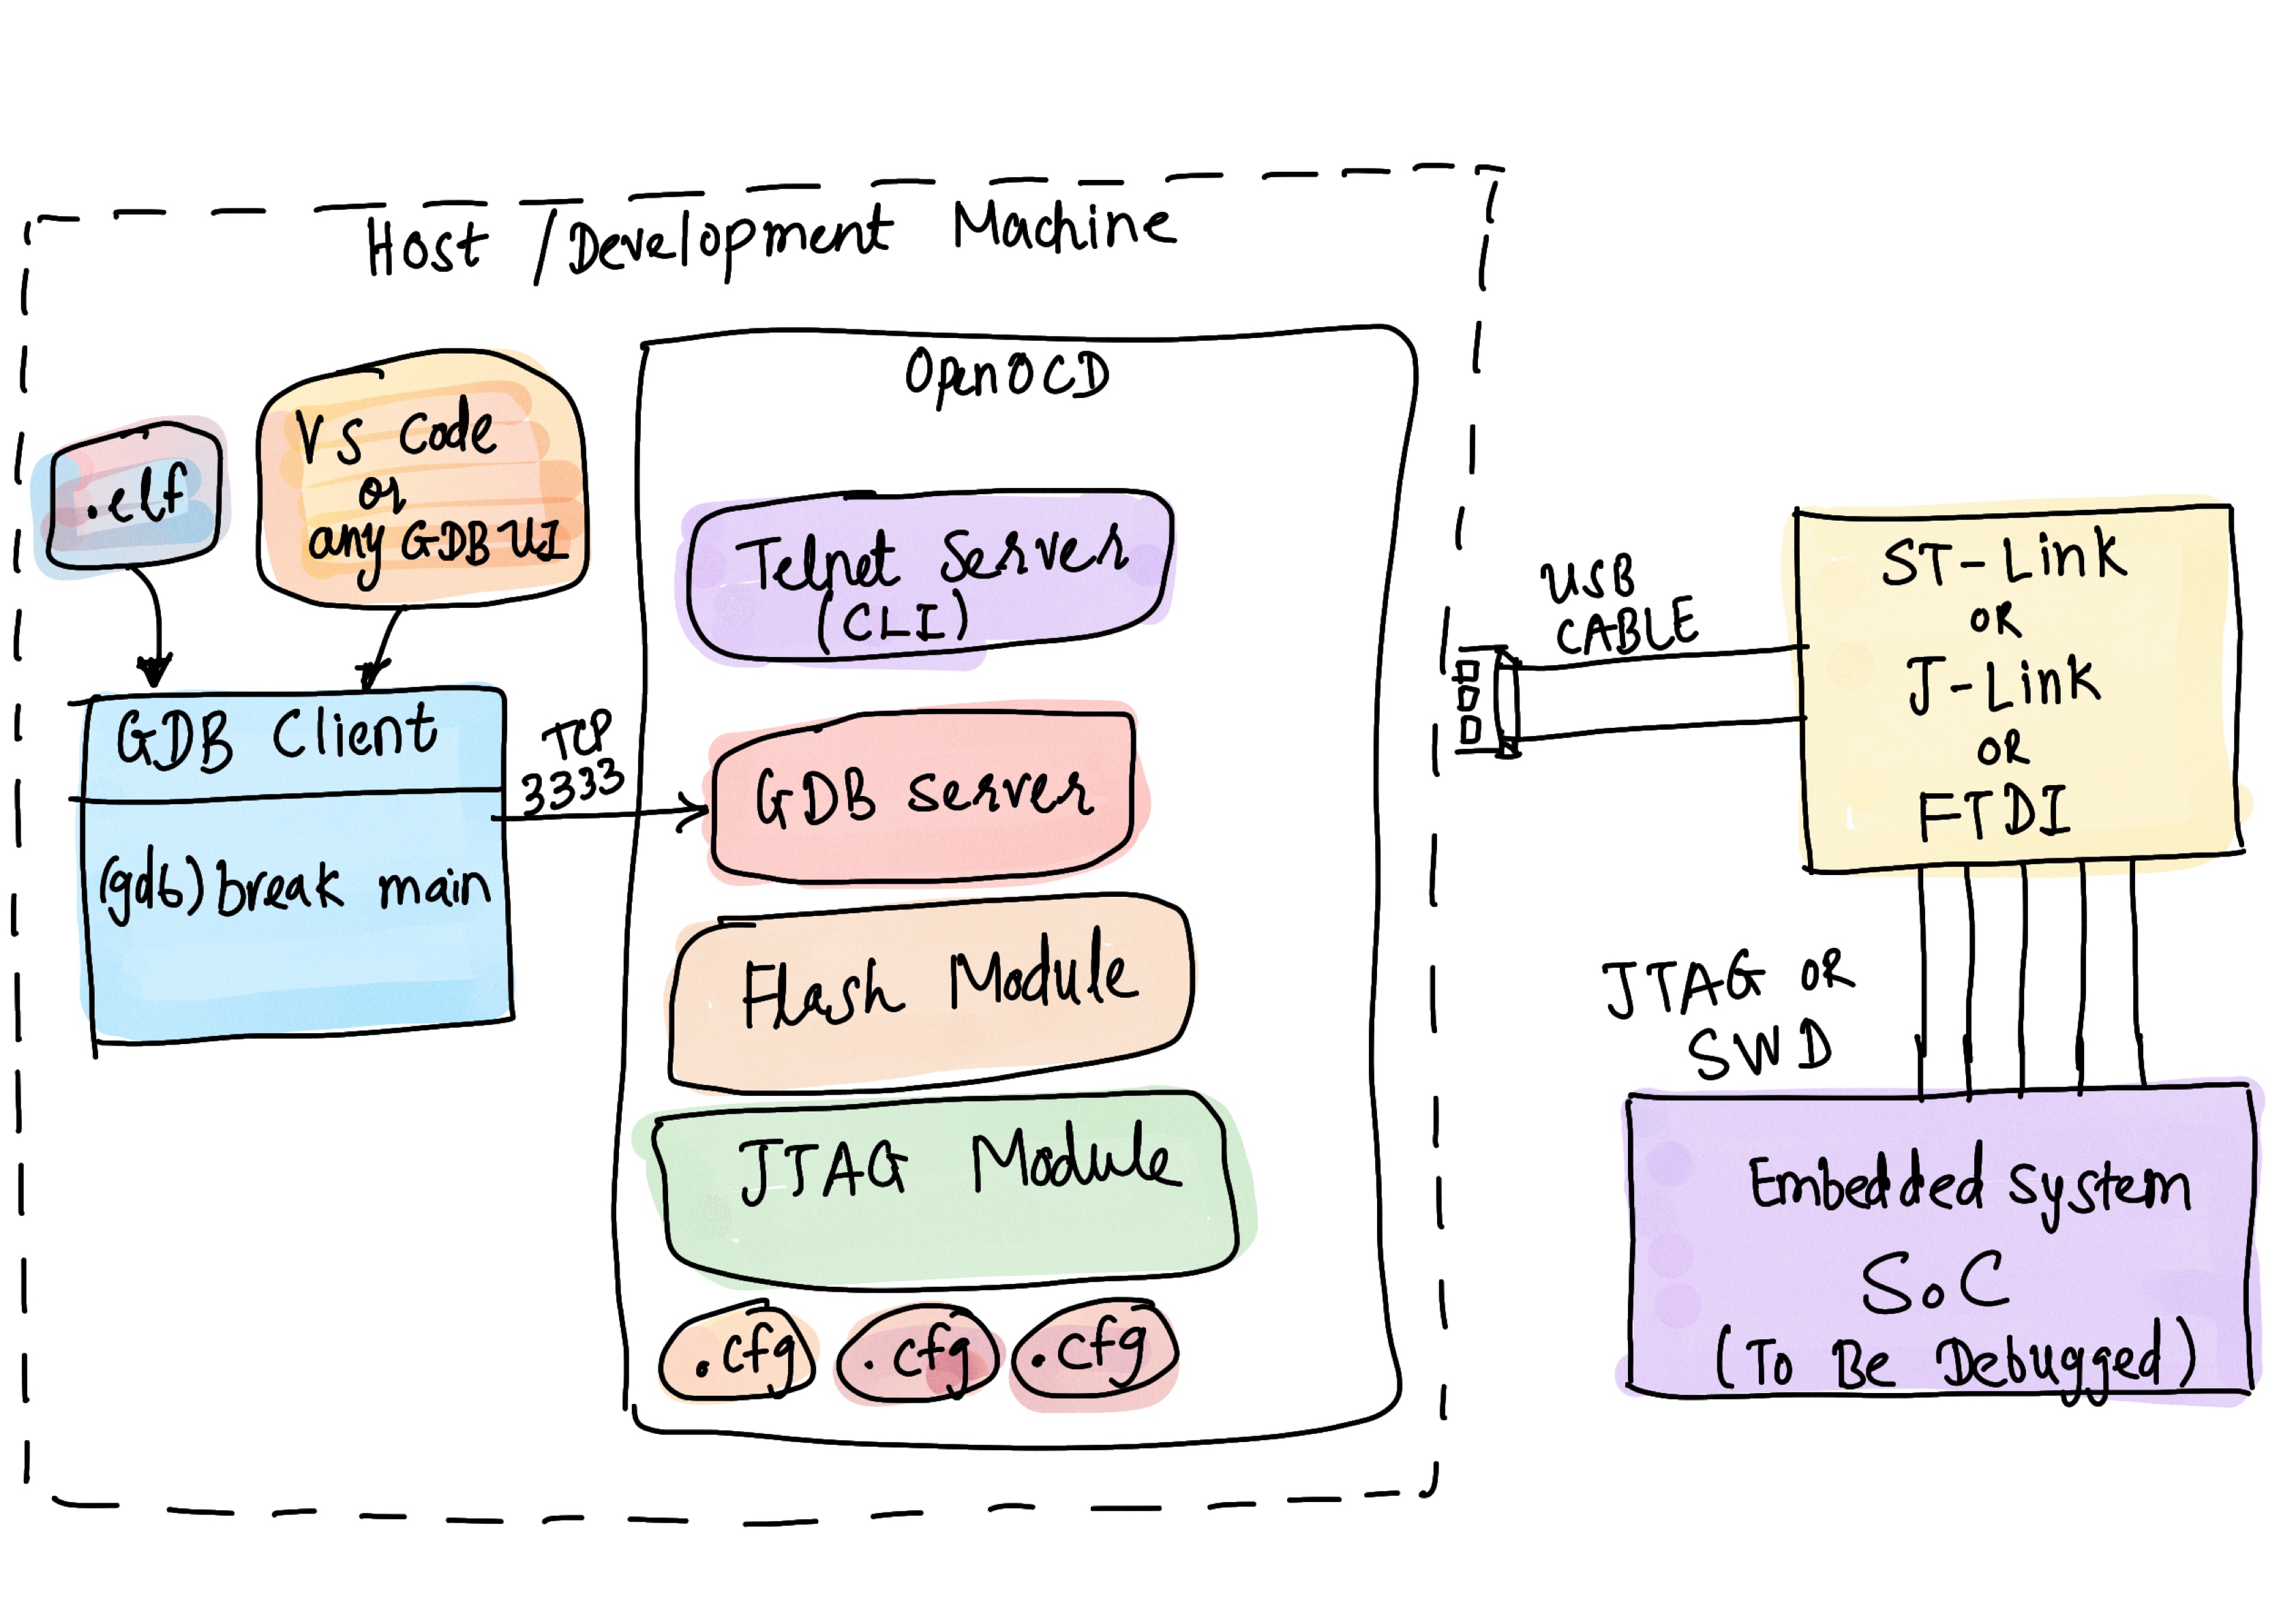 Host / Development Machine
OpenOCD
.elf
Vs Code
or
any GDB UI
GDB Client
(gdb) break main
TCP
3333
Telnet Server
(CLI)
GDB Server
Flash Module
JTAG Module
.cfg
.cfg
.cfg
USB
CABLE
ST-Link
OR
J-Link
OR
FTDI
JTAG OR
SWD
Embedded System
SoC
(To Be Debugged)